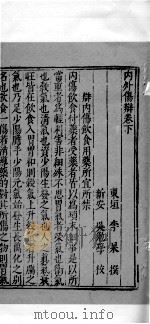 內外傷辯卷下
東垣 李杲 撰
新安 吳勉學 校
辯內傷飲食用藥所宜所禁
內傷飲食付藥者受藥者皆以為瑣末細事是以所
當重者為輕利害非細殊不思胃氣者榮氣也衛氣
也穀氣也清氣也資少陽生發之氣也人之真氣衰
旺皆在飲食入胃胃和則穀氣上升穀氣者升騰之
氣也乃足少陽膽手少陽元氣始發生長萬化之別
名也飲食一傷若消導藥的對其所傷之物則胃氣